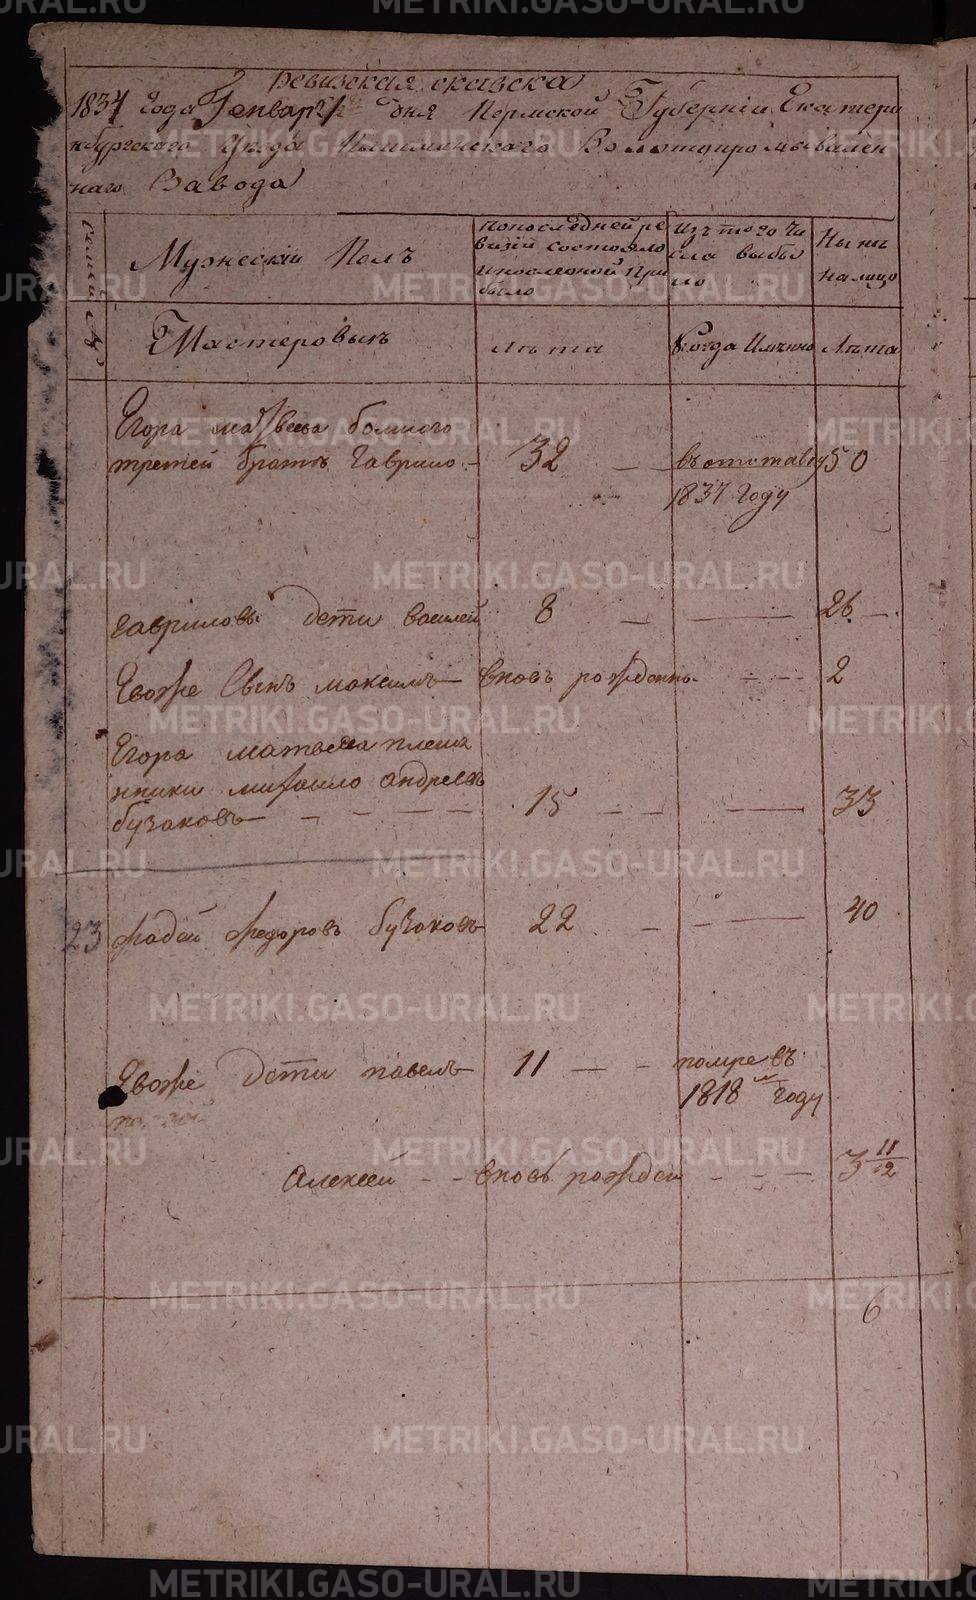 Ревизская сказска
1834 года Генваря дня Пермской Губернiи Екатери
нбургского Уезда Пышминского Золотопромывален
наго Завода
Семьи №
Мужескiй Полъ
Попоследней ре
визiи состояло
ипослеоной при
было
Изъ того чи
сла выбы
ло
Ныне
налицо
Мастеровыхъ
Лъта
Когда Имянно
Лъта
Егора матвеева болного
третей братъ Гаврило
32
въ отставку
50
1837 году
Гавриловы дети Василей
8
26
Евоже Сынъ максимъ
вновь рожденны
2
Егора матвеева племя
нники михаило андреевъ
бузаковъ
15
33
23
Фадей Федоровъ бузаковъ
22
40
Евоже дети павелъ
11
помре въ
1818 году
Алексей
вновь рожден
3 11/12
6
METRIKI.GASO-URAL.RU